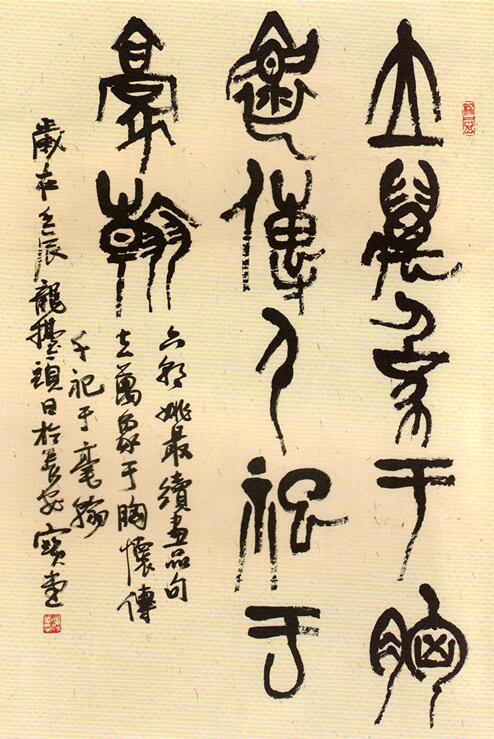 立萬象于胸
懷傳千祀于
毫翰
六朝姚最續畫品句
立萬象于胸懷傳
千祀于毫翰
歲在壬辰龍擡頭日於長安寶